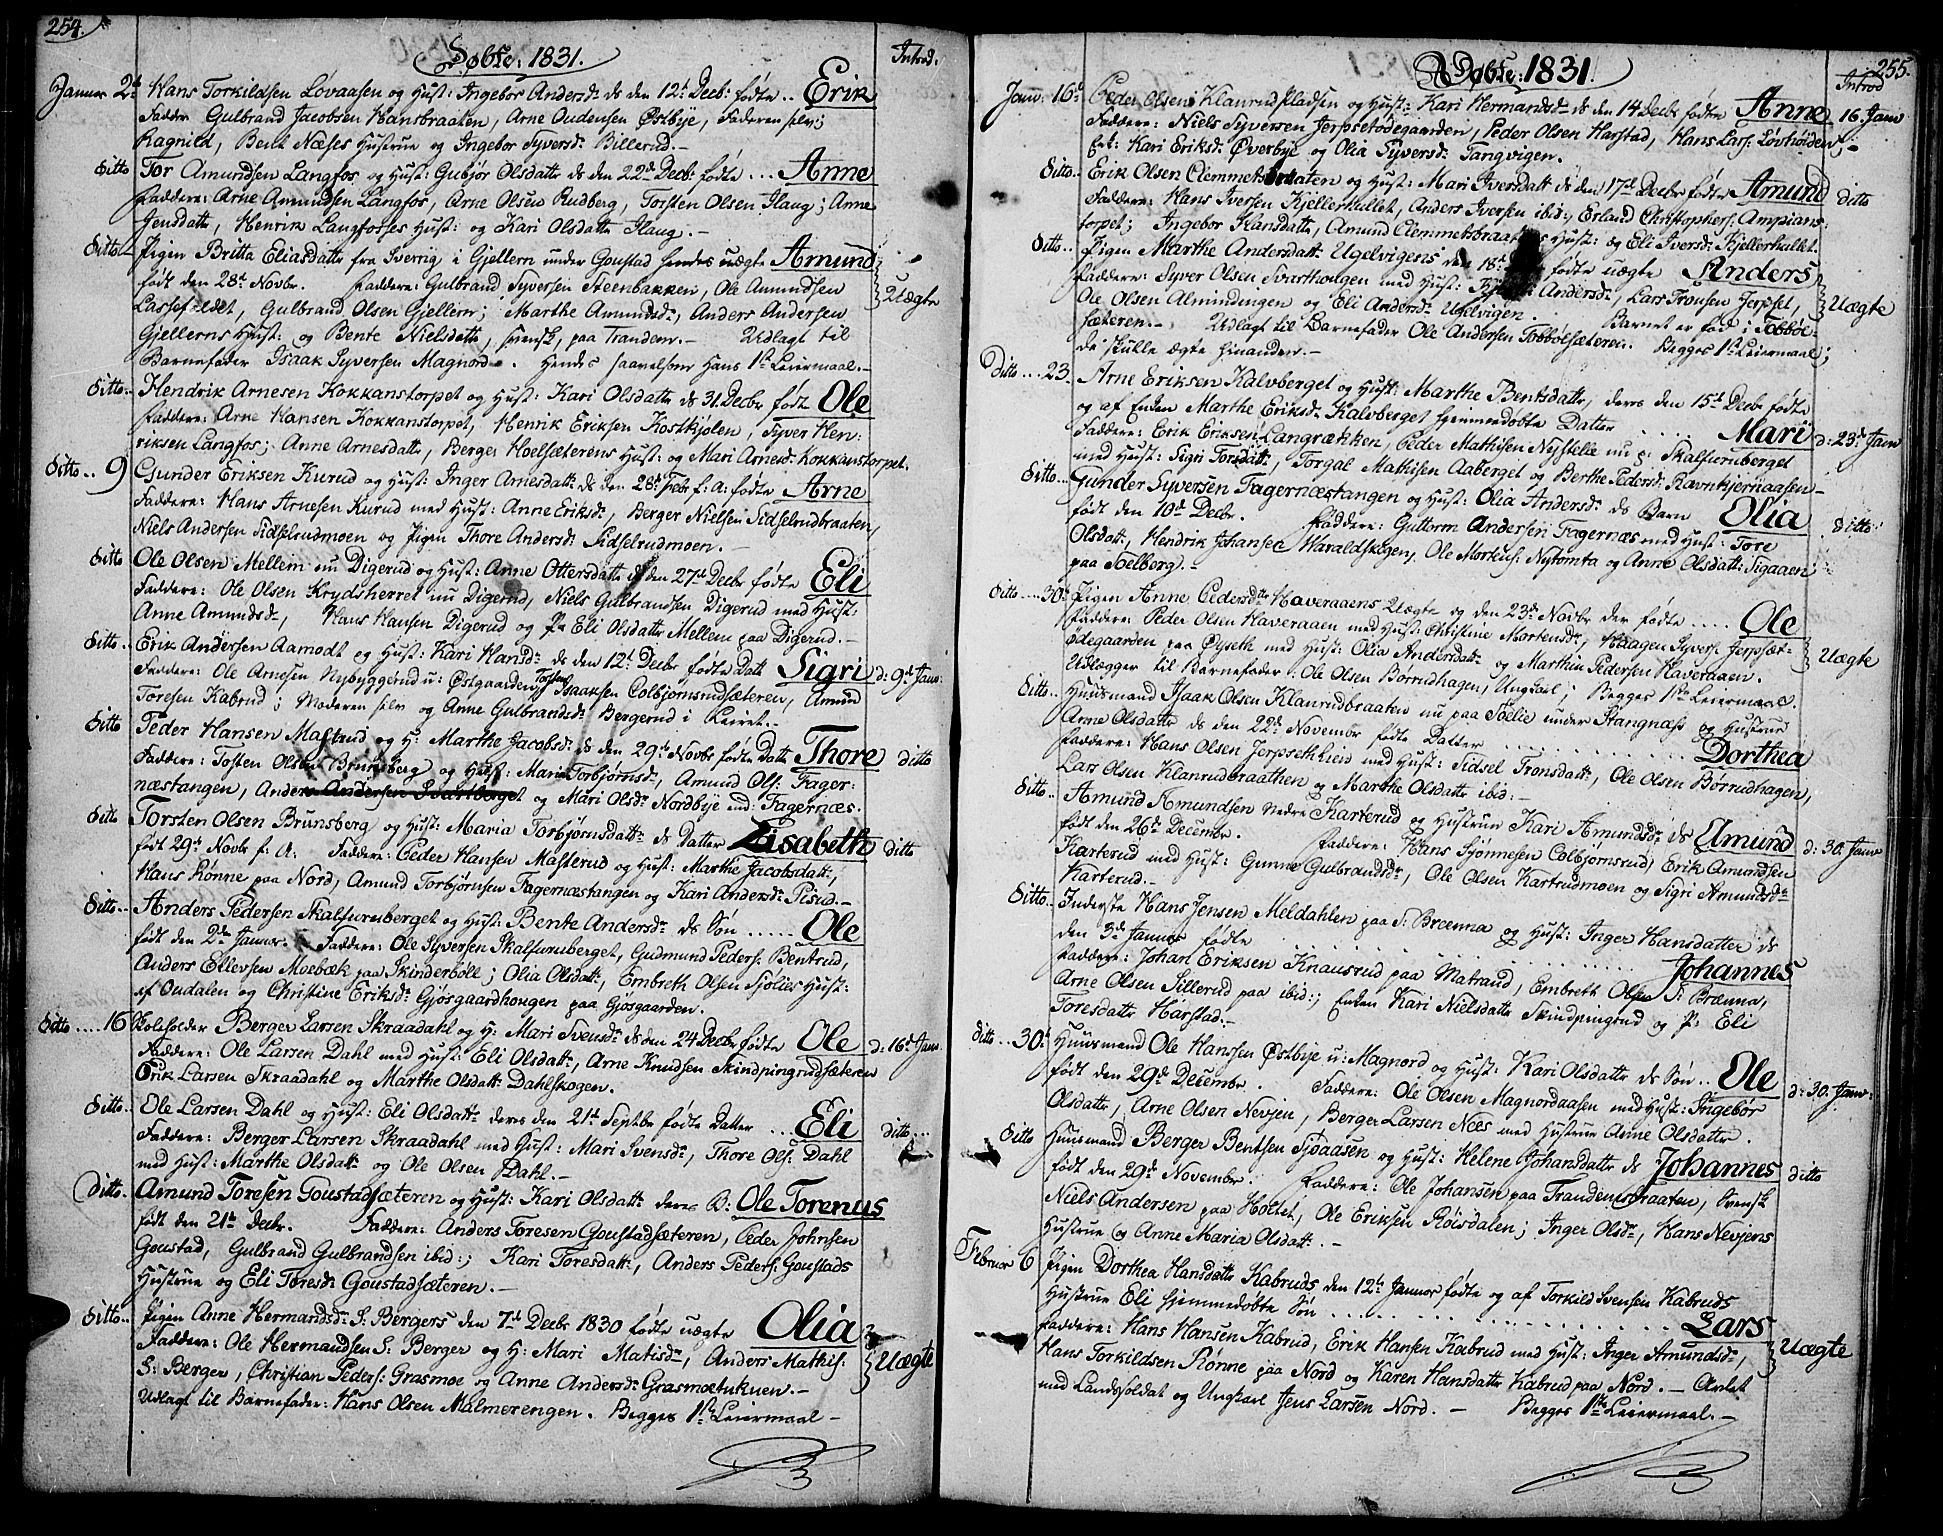 254.
Døbte: 1831.
Introd:
Januar 2d Hans Torkildsen Løvaasen og Hust: Ingebor Andersdr ds den 12t Decbr fødte .. Erik
Faddre Gulbrand Jacobsen Hansbraaten, Arne Oudensen Østbye, Faderen selv;
Ragnild, Bent Næses Hustrue og Ingebor Syversdr Billerud.-
ditto Tor Amundsen Langfos og Hust: Gubjør Olsdatr ds den 22d Decbr fødte ... Anne
Faddere: Arne Amundsen Langfos, Arne Olsen Rudberg, Torsten Olsen Haug; Anne
Jensdattr, Henrik Langfosses Hust: og Kari Olsdattr Haug.-
ditto Pigen Britta Eliasdattr fra Sverrig i Gjellern under Goustad hendes uægte Amund
født den 28t Novbr. Faddere: Gulbrand Syversen Steenbakken, Ole Amundsen Uægte
Lassefoldet, Gulbrand Olsen Gjellern; Marthe Amundsdr, Anders Andersen
Gjellerns Hust: og Bente Nielsdattr, svensk, paa Trandem.- Udlagt til
Barnefader Isaak Syversen Magnord. Hendes saavelsom Hans 1ste Leiermaal.-
ditto.. Hendrik Arnesen Kokkanstorpet og Hust: Kari Olsdattr ds 31. Decbr født Ole
Faddere: Arne Hansen Kokkanstorpet, Henrik Eriksen Kostkjølen, Syver Hen-
riksen Langfos; Anne Arnesdattr, Berger Hoelsæterens Hust: og Mari Arnesdr Kokkanstorpet.
ditto.. 9 Gunder Eriksen Kurud og Hust: Inger Arnesdattr ds den 28t Febr f: A: fødte Arne
Faddere: Hans Arnesen Kurud med Hust: Anne Eriksdr, Berger Nielsen Sidselrudbraaten,
Niels Andersen Sidselrudmoen og Pigen Thore Andersdr Sidselrudmoen.-
ditto Ole Olsen Mellem nu Digerud og Hust: Anne Ottersdattr ds den 27d Decbr fødte Eli
Faddere: Ole Olsen Krydsherret nu Digerud, Niels Gulbrandsen Digerud med Hust:
Anne Amundsdr, Hans Hansen Digerud og P. Eli Olsdattr Mellem paa Digerud.-
ditto.. Erik Andersen Aamodt og Hust: Kari Hansdr ds den 12t Decbr fødte Datt Sigri d: 9d Jan:
Faddere: Ole Arnesen Nybyggerud u: Østgaarden, Torsten Isaaksen Colbjørnsrudsæteren, Amund
Toresen Kabrud; Moderen selv og Anne Gulbrandsdr Bergerud i Leiret.-
ditto Peder Hansen Mastrud og H: Marthe Jacobsdr ds den 29de Novbr fødte Dattr Thore ditto
Faddere: Tosten Olsen Brunsberg og Hust: Maria Torbjørnsdr, Amund Ols: Fager-
næstangen, Anders Andersen Svartberget og Mari Olsdr Nordbye und: Fagernæs.
ditto Torsten Olsen Brunsberg og Hust: Maria Torbjørnsdattr ds Datter Lisabeth ditto
født 29t Novbr f: A. Faddere: Peder Hansen Masterud og Hust: Marthe Jacobsdattr,
Hans Rønne paa Nord, Amund Torbjørnsen Fagernæstangen og Kari Andersdr Pisud.-
ditto.. Anders Pedersen Skalfurnberget og Hust: Bente Andersdr ds Søn ..... Ole
født den 2d Januar. Faddere: Ole Syversen Skalfurnberget, Gudmund Peders: Bentrud,
Anders Ellevsen Moebæk paa Skinderbøll; Olia Olsdattr, Embreth Olsen Sjølies Hust:
af Oudalen og Christine Eriksdr Gjøsgaardhougen paa Gjøsgaarden.
ditto .... 16 Boleholder Berger Larsen Skraadahl og H: Mari Svensdr ds den 24 Decbr fødte Ole d: 16d Jan:
Faddere: Ole Larsen Dahl med Hust: Eli Olsdattr, Arne Knudsen Skindpingrudsæteren
Erik Larsen Skraadahl og Marthe Olsdattr Dahlskogen.
ditto.. Ole Larsen Dahl og Hust: Eli Olsdattr deres den 21d Septbr fødte Datter ... Eli ditto...
Faddere: Berger Larsen Skraadahl med Hust: Mari Svensdr, Thore Ols: Dahl
med Hust: Marthe Olsdattr og Ole Olsen Dahl.-
ditto. Amund Toresen Goustadsæteren og Hust: Kari Olsdattr deres B: Ole Torenus
født den 21de Decbr. Faddere: Anders Toresen Goustadsæteren, Peder Johnsen
Goustad, Gulbrand Gulbrandsen ibid:; Kari Toresdattr, Anders Peders: Goustads
Hustrue og Eli Toresdr Goustadsæteren.-
ditto.. Pigen Anne Hermandsdr S. Bergers den 7d Decbr 1830 fødte uægte Olia
Faddere: Ole Hermandsen S: Berger og H: Mari Matisdr, Anders Mathis: Uægte
S: Berger, Christian Peders: Grasmoe og Anne Andersdr Grasmoetukuen.-
Udlagt til Barnefader: Hans Olsen Malmerengen. Begges 1ste Leiermaal-
255.
Døbte: 1831.
Introd
Janv: 16d Peder Olsen Klanrud Pladsen og Hust: Kari Hermandsd ds den 14 Decbr fødte Anne 16. Janv
Faddere: Niels Syversen Jerpsetødegaarden, Peder Olsen Harstad, Hans Lars: Lovhøiden;
Ent: Kari Eriksdr Øverbye og Olia Syversdr Tangvigen.
ditto.. Erik Olsen Clemmetsbraaten og Hust: Mari Iversdatt ds den 17d Decbr fødte Amund ditto
Faddere: Hans Iversen Kjellerhullet, Anders Iversen ibid:, Erland Christophers: Ampians-
torpet; Ingebor Hansdattr, Amund Clemmetsbraatens Hust: og Eli Iversdr Kjellerhullet.
ditto.. Pigen Marthe Andersdattr Ugelvigens den 18d fødte uægte Anders
Faddere: Syver Olsen Svarthougen med Hust: Andersdr, Lars Tronsen Jerpset,
Ole Olsen Almindingen og Eli Andersdr Ugelvigen. Barnet er fød i Tobbøl- Uægte
sæteren.- Udlagt til Barnefader Ole Andersen Tobbølsæteren. Begges 1ste Leiermaal;
de skulle ægte hinanden.-
Ditto.... 23. Arne Eriksen Kalvberget og Hust: Marthe Bentsdattr, deres den 15d Decbr fødte
og af Enken Marthe Eriksdr Kalvberget hjemmedøbte Datter ..... Mari d: 23d Janv
Faddere: Erik Eriksen Langrækken, Peder Mathisen Nyststelle nu p: Skalfurnberget
med Hust: Sigri Torsdattr, Torgal Mathisen Aaberget og Berthe Pedersdr Ravnhjernaasen-
ditto.... Gunder Syversen Fagernæstangen og Hust: Olia Andersdr ds Barn Olia ditto:
født den 10d Decbr. Faddere: Guttorm Andersen Fagernæs med Hust: Tore
Olsdattr, Hendrik Johansen Varaldskogen, Ole Morkus: Nytomta og Anne Olsdattr Sigaaen
paa Følberg.-
ditto.... 30d Pigen Anne Pedersdttr Haveraaens Uægte og den 23d Novbr der fødte ..... Ole
Faddere: Peder Olsen Haveraaen med Hust: Christine Mortensdr, Haagen Syvers: Jerpset-
ødegaarden paa Øyseth med Hust: Olia Andersdattr og Marthin Pedersen Haveraaen. Uægte
Udlægger til Barnefader: Ole Olsen Børrudhagen, Ungkarl; Begges 1ste Leiermaal.
ditto.. Huusmand Isaak Olsen Klanrudbraaten nu paa Sælie under Stangnæss og Hustrue
Anne Olsdattr ds den 22d November fødte Datter ........... Dorthea
Faddere: Hans Olsen Jerpsethleid med Hust: Sidsel Tronsdattr, Ole Olsen Børrudhagen,
Lars Olsen Klanrudbraathen og Marthe Olsdattr ibid:-
ditto.. Amund Amundsen nedre Karterud og Hustrue Kari Amundsdr ds Amund d: 30. Janv
født den 26d Decembr. Faddere: Hans Sjønnesen Colbjørnsrud, Erik Amundsen
Karterud med Hust: Gunne Gulbrandsdr, Ole Olsen Kartrudmoen og Sigri Amundsdr
Karterud.-
ditto.. Inderste Hans Jensen Meldahlen paa S. Brænna og Hust: Inger Hansdatter ds
den 3d Januar fødte ................ Johannes
Faddere: Johan Eriksen Knausrud paa Matrand, Embreth Olsen S: Brænna,
Arne Olsen Sillerud paa ibid:; Enken Kari Nielsdattr Skindpungrud og P: Eli
Toresdattr Harstad.-
ditto.. 30d Huusmand Ole Hanssen Østbye u: Magnord og Hust: Kari Olsdattr ds Søn .. Ole d: 30. Janv:
født den 29d Decembr. Faddere: Ole Olsen Magnordaasen med Hust: Ingebør
Olsdattr, Arne Olsen Nevjen, Berger Larsen Næs med Hustrue Anne Olsdattr.
ditto Huusmand Berger Bentsen Sjøaasen og Hust: Helene Johansdattr ds Johannes ditto
født den 29d Novembr. Faddere: Ole Johansen paa Trandemsbraaten, Svensk
Niels Andersen paa Holtet, Ole Eriksen Røisdalen; Inger Olsdr, Hans Nevjens
Hustrue og Anne Maria Olsdattr.-
Februar 6 Pigen Dorthea Hansdattr Kabruds den 12te Januar fødte og af Torkild Svensen Kabruds
Hustrue Eli hjemmedøbte Søn ................. Lars
Faddere: Hans Hansen Kabrud, Erik Hansen Kabrud med Hust: Inger Amundsdr, Uægte
Hans Torkildsen Rønne paa Nord og Karen Hansdattr Kabrud paa Nord.- Avlet
med Landsoldat og Ungkarl Jens Larsen Nord.- Begges 1ste Leiermaal.-